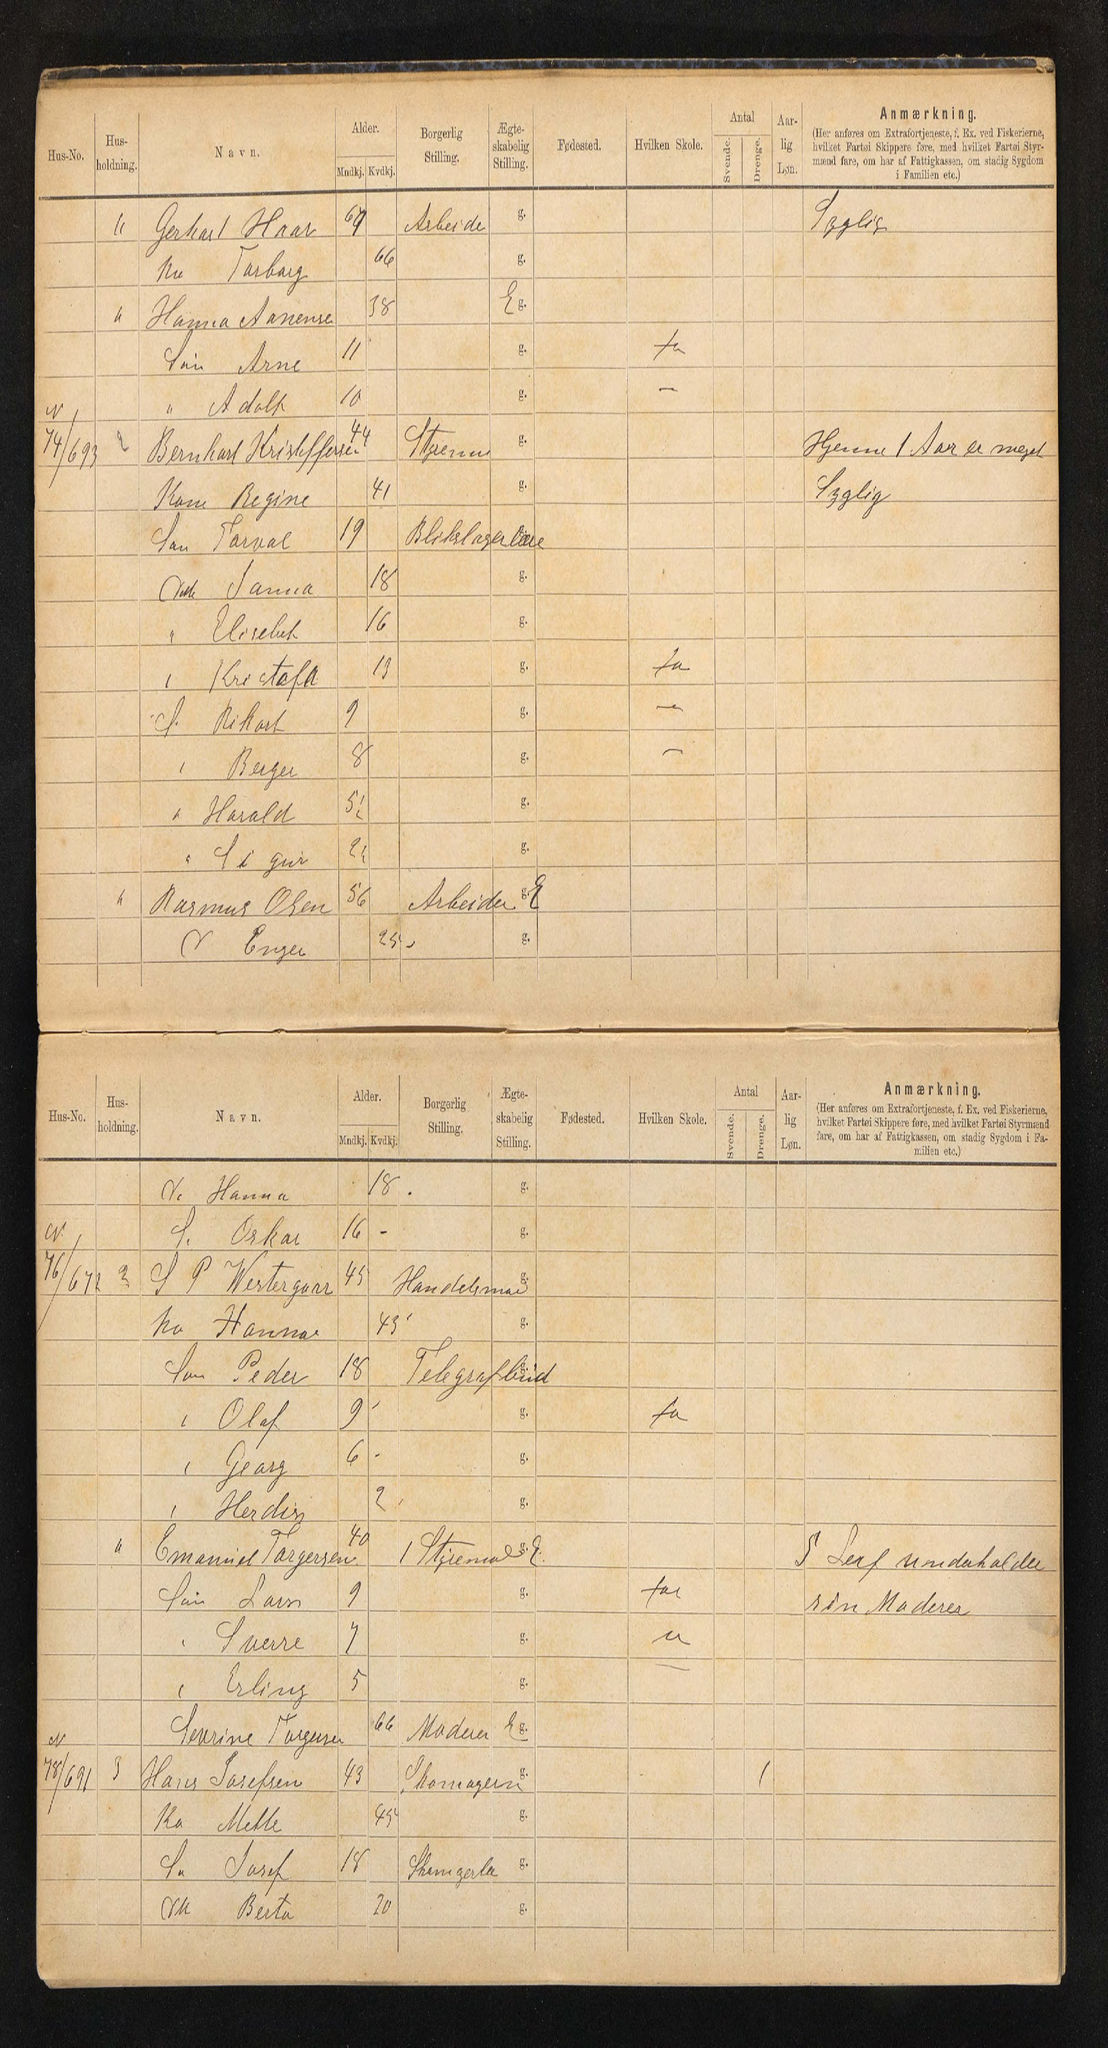 Hus-No. Hus-holdning. Navn. Alder. Mndkj. Kvdkj. Borgerlig Stilling. Ægte-skabelig Stilling. Fødested. Hvilken Skole. Antal Svende. Drenge. Aar-lig Løn. Anmærkning.
(Her anføres om Extrafortjeneste, f. Ex. ved Fiskerierne,
hvilket Partøi Skippere føre, med hvilket Fartøi Styr-
mænd fare, om har af Fattigkassen, om stadig Sygdom
i Familien etc.)
" Gerhart Haar 67 Arbeide g. Syglig
Ko Torborg 66 g.
" Hanna Aanense 38 E g.
Søn Arne 11 g. fa
" Adolf 10 g. —
N
74/693 2 Bernhart Kristoffersen 44 Styrem g. Hjemme 1 Aar er meget
Kone Regine 41 g. Syglig
Søn Torval 19 Blikslagerlære
Dat Janna 18 g.
" Elisebet 16 g.
" Kristofa 13 g. fa
S. Rikart 9 g. —
" Berger 8 g. —
" Harald 5½ g.
" Sigur g.
" Rasmus Olsen 56 Arbeider g. E
D Enger 25 g.
Hus-No. Hus-holdning. Navn. Alder. Mndkj. Kvdkj. Borgerlig Stilling. Ægte-skabelig Stilling. Fødested. Hvilken Skole. Antal Svende. Drenge. Aar-lig Løn. Anmærkning.
(Her anføres om Extrafortjeneste, f. Ex. ved Fiskerierne,
hvilket Partøi Skippere føre, med hvilket Fartøi Styrmænd
fare, om har af Fattigkassen, om stadig Sygdom i Fa-
milien etc.)
D. Hanna 18 g.
S. Oskar 16 - g.
N
76/672 3 S P Westergaar 45 Handelsman g.
Ko Hanna 43 g.
Søn Peder 18 Telegrafbud g.
" Olaf 9 g. fa
" Georg 6 - g.
" Herdis 2 g.
" Emanuel Torgersen 40 1 Styrema g. E. underholder
Søn Lars 9 g. fa sin Moderer
" Sverre 7 g. "
" Erling 5 g. —
Sevrine Torgersen 66 Moderer E g.
N
78/691 3 Hans Josefsen 43 Skomagern g. 1
Ko Mette 45 g.
Sø Josef 18 g.
Dat Berta 20 g.